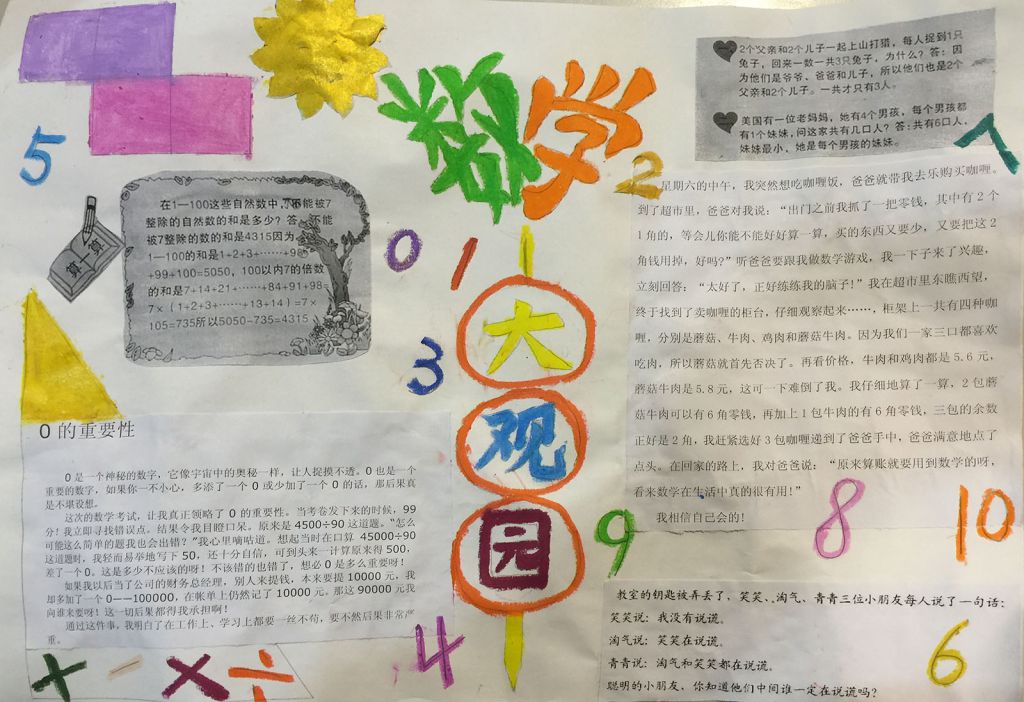 数学
大
观
园
5
0
1
2
3
4
6
7
8
9
10
+ - × ÷
2个父亲和2个儿子一起上山打猎，每人捉到1只
兔子，回来一数一共3只兔子，为什么？答：因
为他们是爷爷、爸爸和儿子，所以他们也是2个
父亲和2个儿子。一共才只有3人。
美国有一位老妈妈，她有4个男孩，每个男孩都
有1个妹妹，问这家共有几口人？答：共有6口人，
妹妹最小，她是每个男孩的妹妹。
算一算
在1—100这些自然数中，不能被7
整除的自然数的和是多少？答：不能
被7整除的数的和是4315因为
1—100的和是1+2+3+……+98
+99+100=5050，100以内7的倍数
的和是7+14+21+……+84+91+98=
7×（1+2+3+……+13+14）=7×
105=735所以5050-735=4315
星期六的中午，我突然想吃咖喱饭，爸爸就带我去乐购买咖喱。
到了超市里，爸爸对我说：“出门之前我抓了一把零钱，其中有2个
1角的，等会儿你能不能好好算一算，买的东西又要少，又要把这2
角钱用掉，好吗？”听爸爸要跟我做数学游戏，我一下子来了兴趣，
立刻回答：“太好了，正好练练我的脑子！”我在超市里东瞧西望，
终于找到了卖咖喱的柜台，仔细观察起来……，柜架上一共有四种咖
喱，分别是蘑菇、牛肉、鸡肉和蘑菇牛肉。因为我们一家三口都喜欢
吃肉，所以蘑菇就首先否决了。再看价格，牛肉和鸡肉都是5.6元，
蘑菇牛肉是5.8元，这可一下难倒了我。我仔细地算了一算，2包蘑
菇牛肉可以有6角零钱，再加上1包牛肉的有6角零钱，三包的余数
正好是2角，我赶紧选好3包咖喱递到了爸爸手中，爸爸满意地点了
点头。在回家的路上，我对爸爸说：“原来算账就要用到数学的呀，
看来数学在生活中真的很有用！”
我相信自己会的！
0的重要性
0是一个神秘的数字，它像宇宙中的奥秘一样，让人捉摸不透。0也是一个
重要的数字，如果你一不小心，多添了一个0或少加了一个0的话，那后果真
是不堪设想。
这次的数学考试，让我真正领略了0的重要性。当考卷发下来的时候，99
分！我立即寻找错误点。结果令我目瞪口呆。原来是4500÷90这道题。“怎么
可能这么简单的题我也会出错？”我心里嘀咕道。想起当时在口算 45000÷90
这道题时，我轻而易举地写下50，还十分自信，可到头来一计算原来得500，
差了一个0。这是多少不应该的呀！不该错的也错了，想必0是多么重要呀！
如果我以后当了公司的财务总经理，别人来提钱，本来要提10000元，我
却多加了一个0——100000，在帐单上仍然记了10000元。那这90000元我
向谁来要呀！这一切后果都得我承担啊！
通过这件事，我明白了在工作上、学习上都要一丝不苟，要不然后果非常严
重。
教室的钥匙被弄丢了，笑笑、淘气、青青三位小朋友每人说了一句话：
笑笑说：我没有说谎。
淘气说：笑笑在说谎。
青青说：淘气和笑笑都在说谎。
聪明的小朋友，你知道他们中间谁一定在说谎吗？